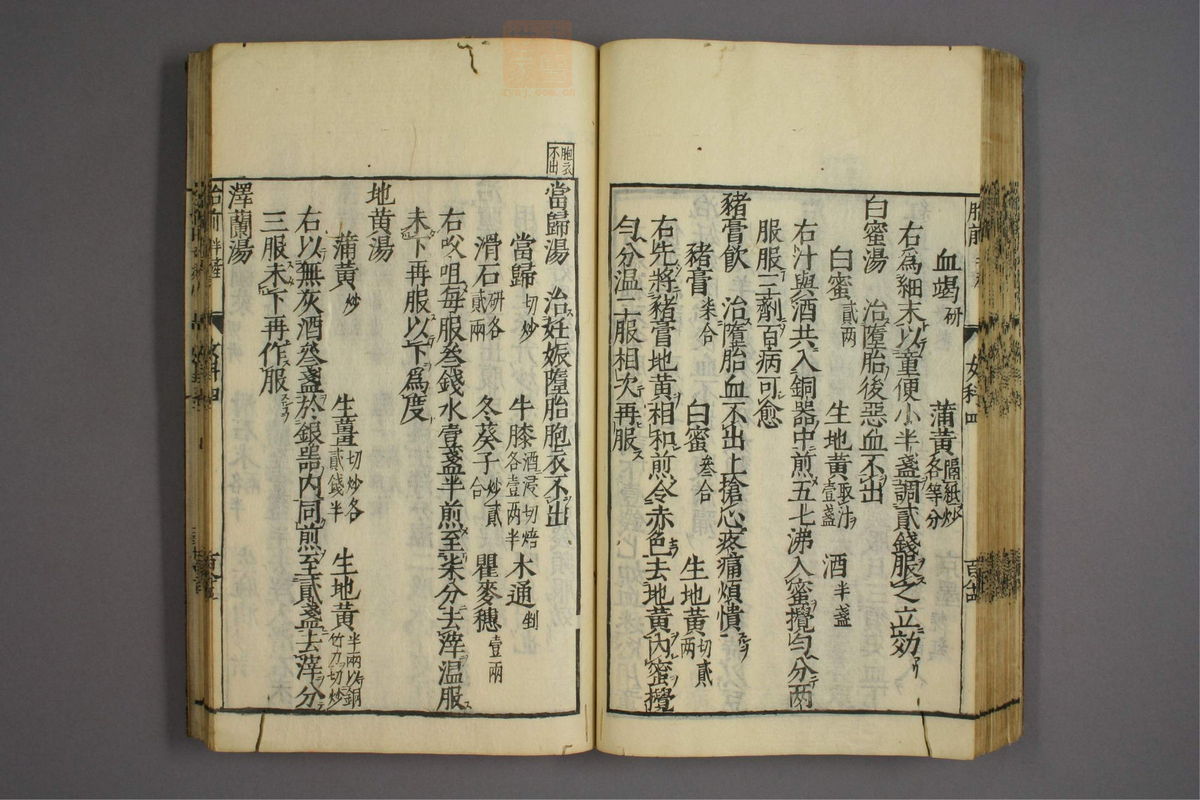 血竭研 蒲黃隔紙炒各等分
右為細末以童便小半盞調貳錢服之立効
白蜜湯 治墮胎後惡血不出
白蜜貳两 生地黃取汁壹盞 酒半盞
右汁與酒共入銅器中煎五七沸入蜜攪勻分两
服服三劑百病可愈
豬膏飲 治墮胎血不出上搶心疼痛煩憒
豬膏柒合 白蜜叄合 生地黃切貳两
右先將豬膏地黃相和煎令赤色去地黃內蜜攪
勻分温二服相次再服
胞衣不出
當歸湯 治妊娠墮胎胞衣不出
當歸切炒 牛膝酒浸切焙各壹两半 木通剉
滑石研各貳兩 冬葵子炒貳合 瞿麥穗壹兩
右㕮咀每服叄錢水壹盞半煎至柒分去滓温服
未下再服以下為度
地黃湯
蒲黃炒 生薑切炒各貳錢半 生地黃半兩以銅竹刀切炒
右以無灰酒叄盞於銀器內同煎至貳盞去滓分
三服未下再作服
澤蘭湯
女科四